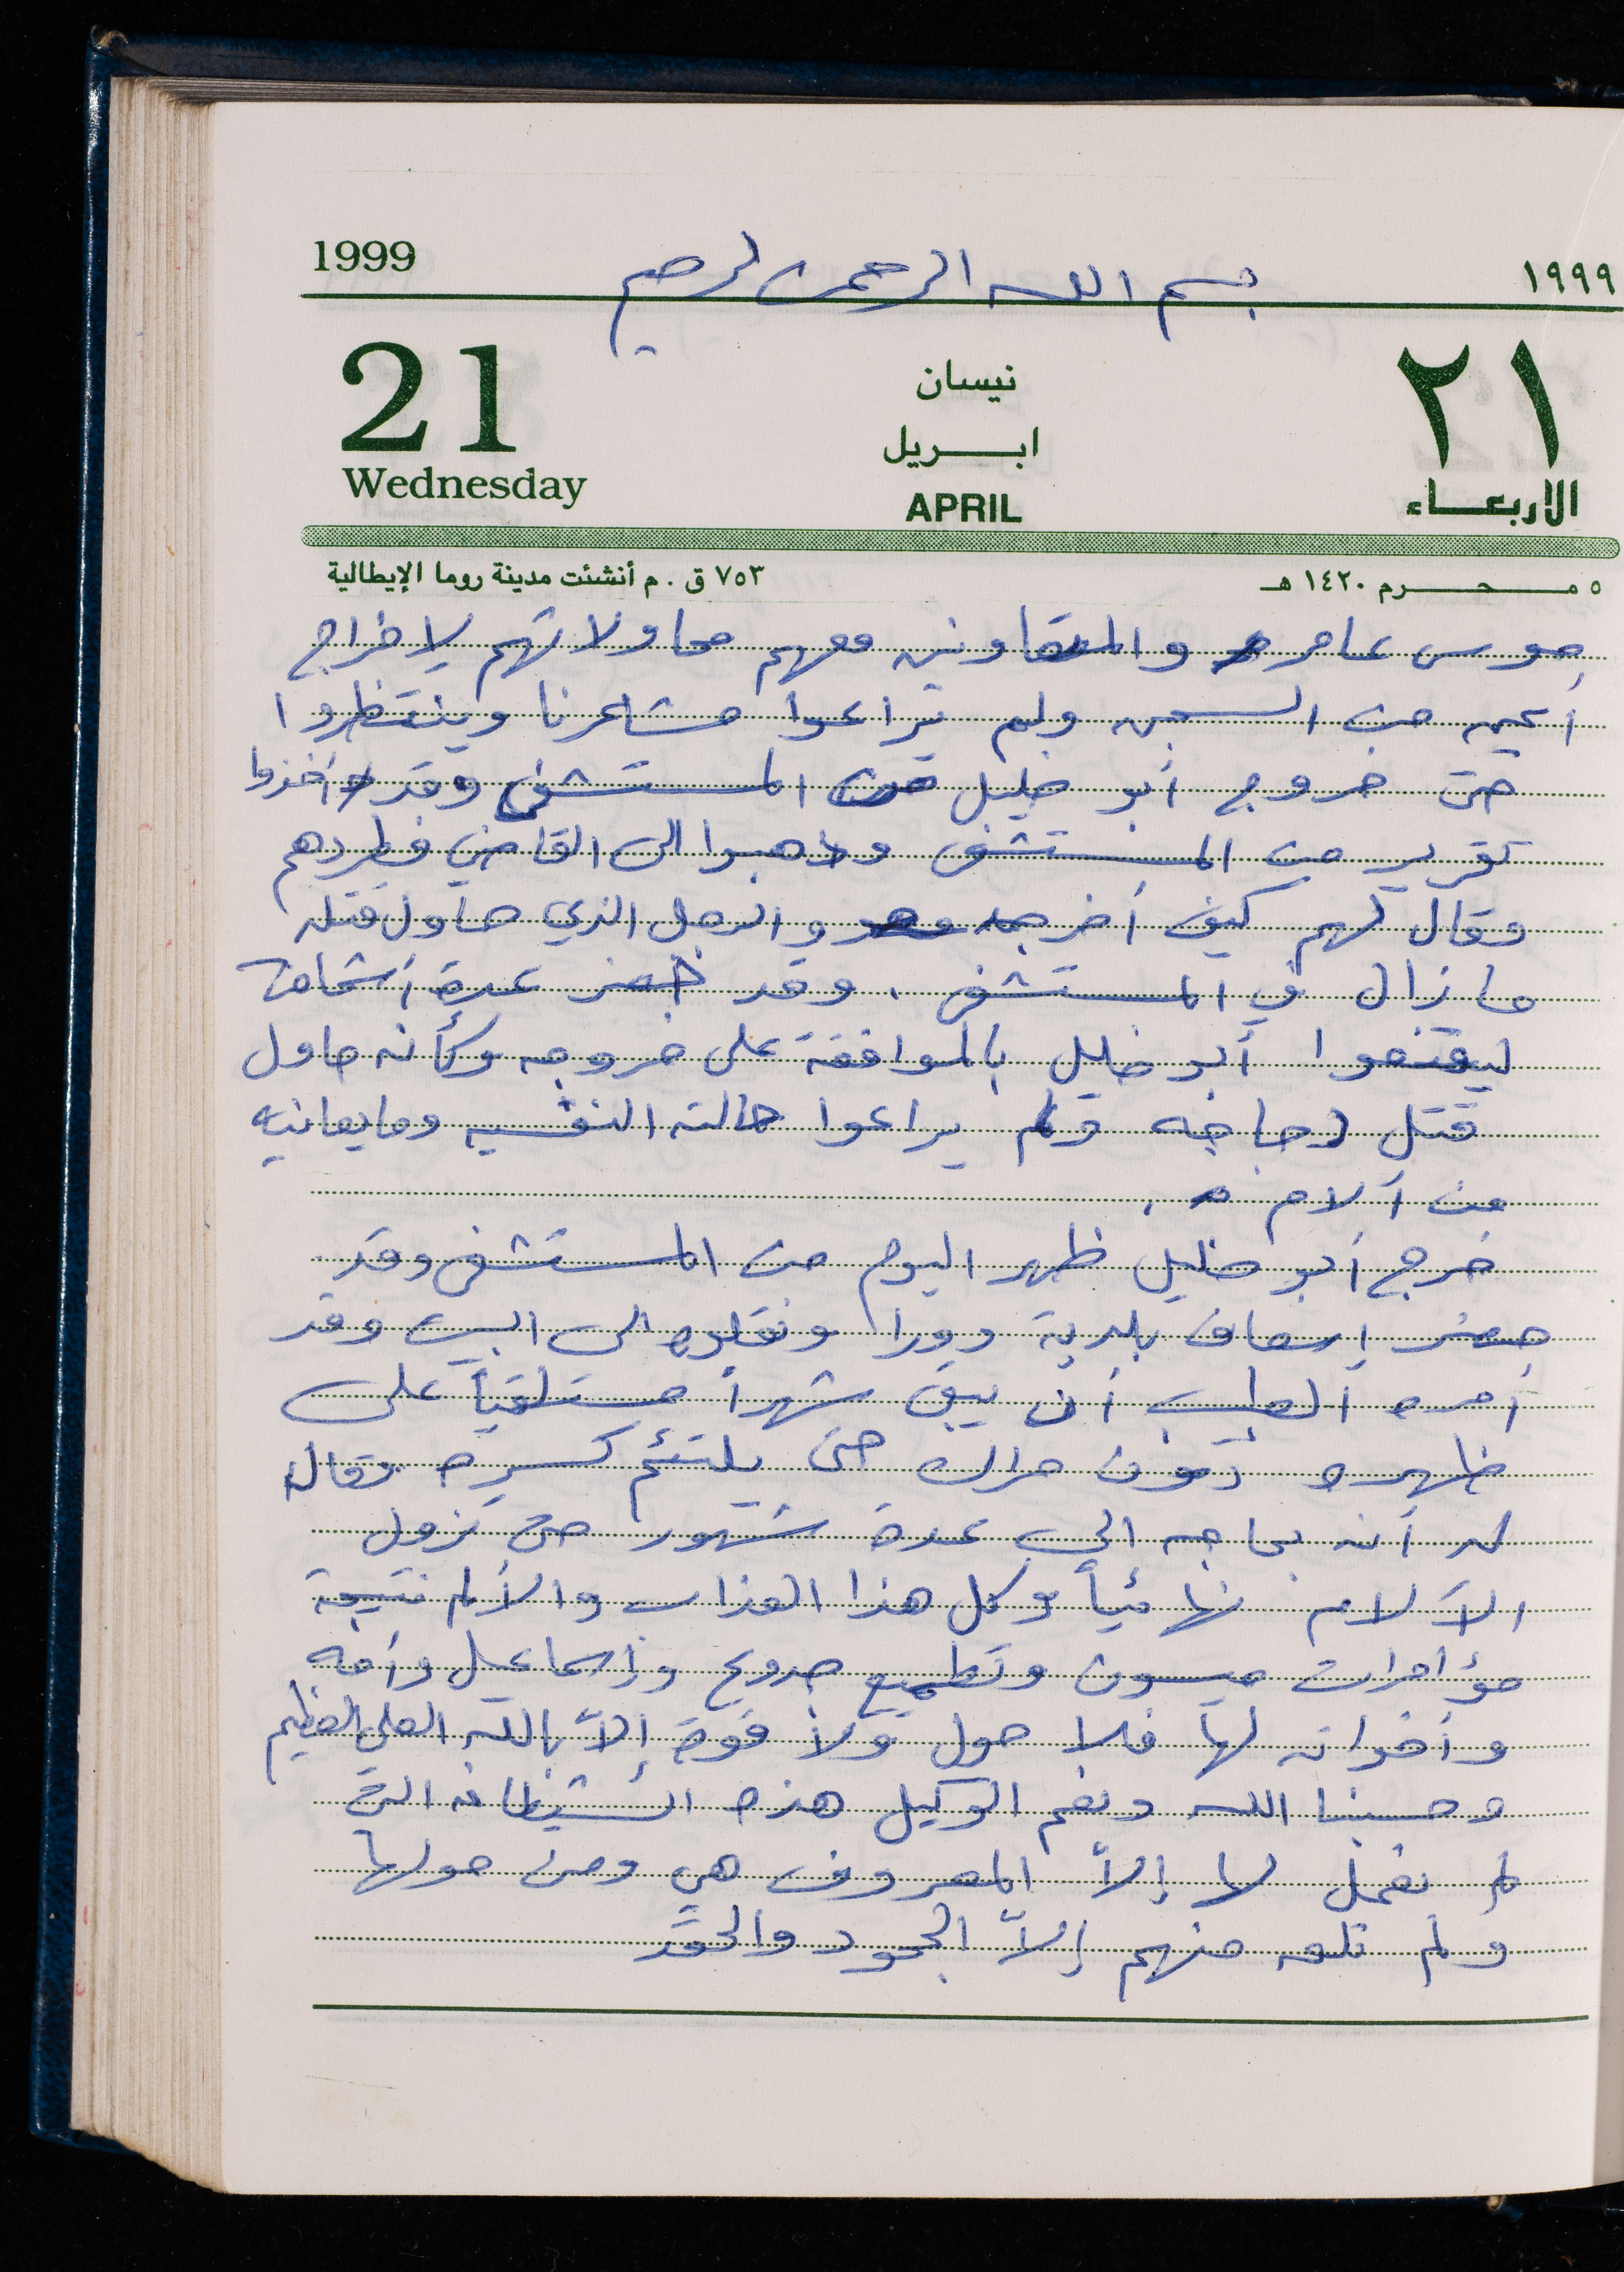 1999
بسم الله الرحمن الرحيم
١٩٩٩
21
Wednesday
نيسان
ابريل
APRIL
٢١
الاربعاء
٥ محرم ١٤٢٠ هـ
٧٥٣ ق . م أنشئت مدينة روما الإيطالية
عامر والمتعاونين معهم محاولاتهم لاخراج
أمين من السجن ولم يراعوا مشاعرنا وينتظروا
حتى خروج أبو خليل من المستشفى وقد أخذوا
تقرير من المستشفى وذهبوا الى القاضي فطردهم
وقال لهم كيف أخرجه والرجل الذي حاول قتله
ما زال في المستشفى . وقد حضر عدة أشخاص
ليقنعوا أبو خليل بالموافقة على خروجه وكأنه حاول
قتل دجاجه ولم يراعوا حالته النفسيه وما يعانيه
من آلام .
خرج أبو خليل ظهر اليوم من المستشفى وقد
حضر إسعاف بلدية دورا ونقلوه الى البيت وقد
أمره الطبيب أن يبقى شهراً مستلقياً على
ظهره دون حراك حتى يلتئم كسره وقال
له أنه بحاجه الى عدة شهور حتى تزول
الآلام نهائياً وكل هذا العذاب والألم نتيجة
مؤامرات ميسون وتطميع ممدوح وإسماعيل وأمه
وأخواته لها فلا حول ولا قوة إلاّ بالله العلي العظيم
وحسبنا الله ونعم الوكيل هذه الشيطانه التي
لم نعمل لها إلاّ المعروف هي ومن حولها
ولم نلق منهم إلاّ الجحود والحقد